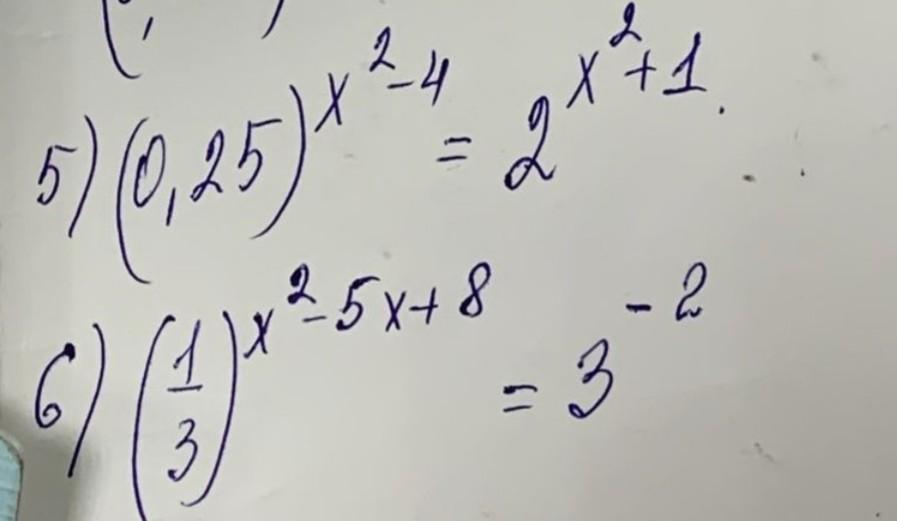 5) (0,25)^{x^2-4} = 2^{x^2+1}.
6) (1/3)^{x^2-5x+8} = 3^{-2}